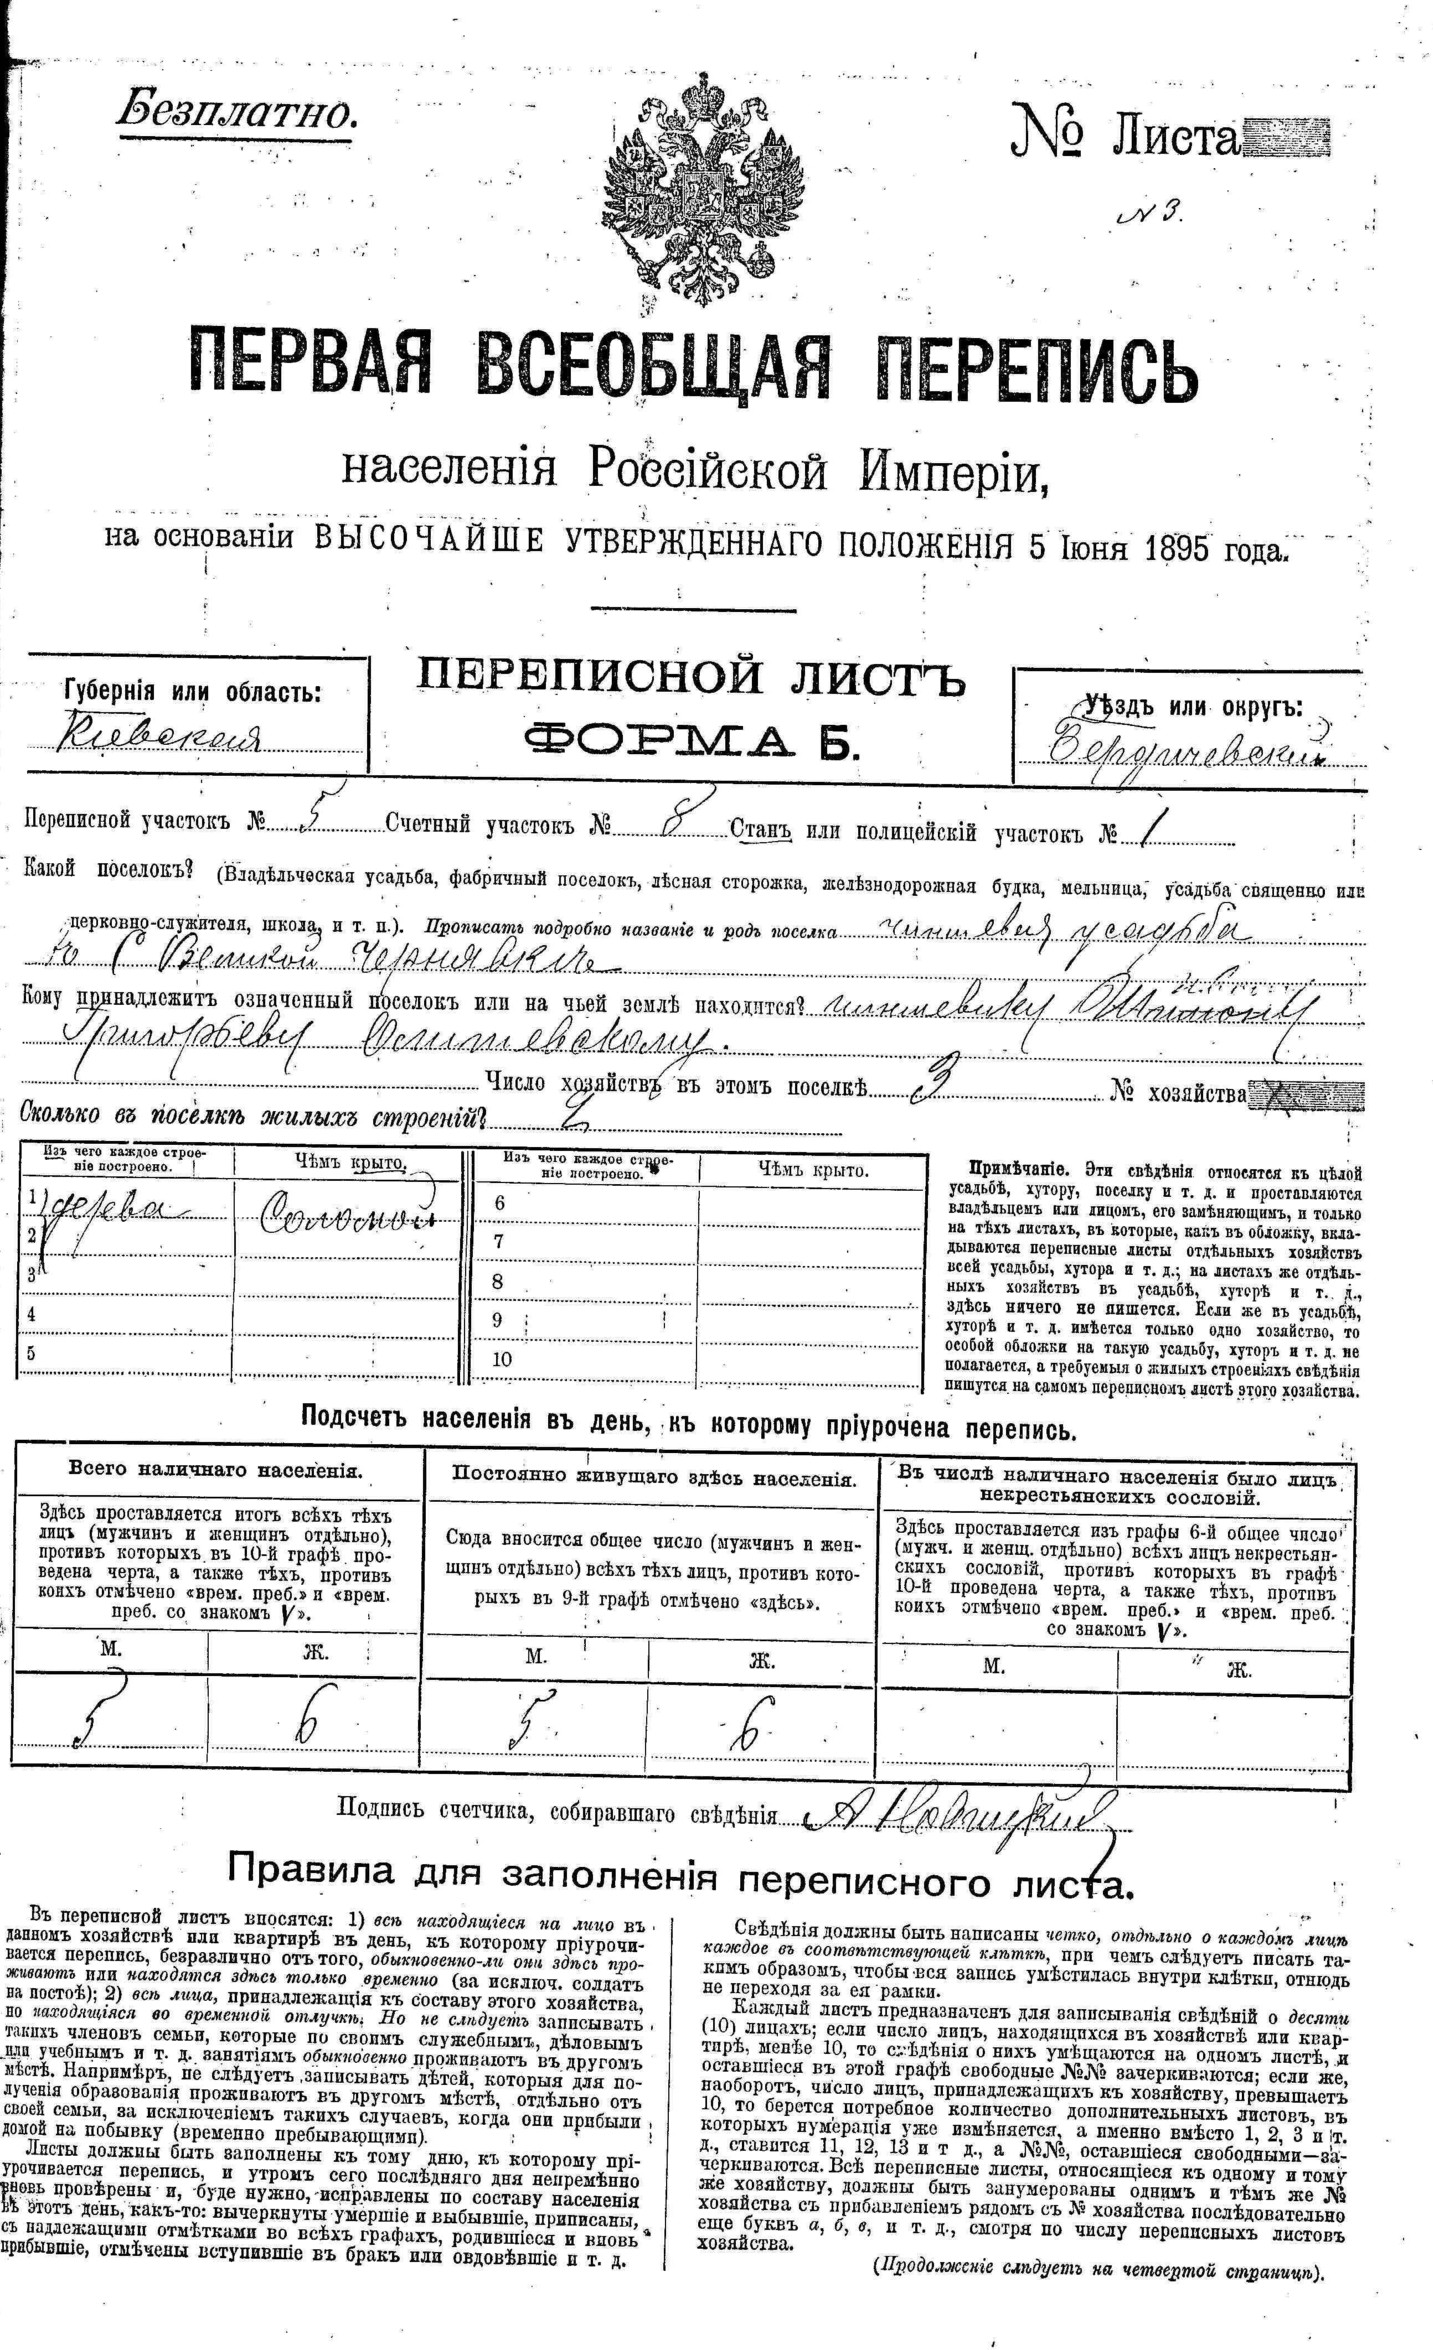 Безплатно.
№ Листа
№ 3.
ПЕРВАЯ ВСЕОБЩАЯ ПЕРЕПИСЬ
населенія Россійской Имперіи,
на основаніи ВЫСОЧАЙШЕ УТВЕРЖДЕННАГО ПОЛОЖЕНІЯ 5 Іюня 1895 года.
Губернія или область:
Киевская
ПЕРЕПИСНОЙ ЛИСТЪ
ФОРМА Б.
Уѣздъ или округъ:
Бердичевский
Переписной участокъ № 5 Счетный участокъ № 8 Станъ или полицейскій участокъ № 1
Какой поселокъ? (Владѣльческая усадьба, фабричный поселокъ, лѣсная сторожка, желѣзнодорожная будка, мельница, усадьба священно или
церковно-служителя, школа, и т. п.). Прописать подробно названіе и родъ поселка чиншевая усадьба
въ с Великой Чернявкѣ
Кому принадлежитъ означенный поселокъ или на чьей землѣ находится? чиншевику
Григорьеву
Число хозяйствъ въ этомъ поселкѣ 3 № хозяйства
Сколько въ поселкѣ жилыхъ строеній? 2
Изъ чего каждое строе-
ніе построено.
Чѣмъ крыто.
Изъ чего каждое строе-
ніе построено.
Чѣмъ крыто.
1) дерева Соломой 6
2 7
3 8
4 9
5 10
Примѣчаніе. Эти свѣдѣнія относятся къ цѣлой
усадьбѣ, хутору, поселку и т. д. и проставляются
владѣльцемъ или лицомъ, его замѣняющимъ, и только
на тѣхъ листахъ, въ которые, какъ въ обложку, вкла-
дываются переписные листы отдѣльныхъ хозяйствъ
всей усадьбы, хутора и т. д.; на листахъ же отдѣль-
ныхъ хозяйствъ въ усадьбѣ, хуторѣ и т. д.,
здѣсь ничего не пишется. Если же въ усадьбѣ,
хуторѣ и т. д. имѣется только одно хозяйство, то
особой обложки на такую усадьбу, хуторъ и т. д. не
полагается, а требуемыя о жилыхъ строеніяхъ свѣдѣнія
пишутся на самомъ переписномъ листѣ этого хозяйства.
Подсчетъ населенія въ день, къ которому пріурочена перепись.
Всего наличнаго населенія.
Здѣсь проставляется итогъ всѣхъ тѣхъ
лицъ (мужчинъ и женщинъ отдѣльно),
противъ которыхъ въ 10-й графѣ про-
ведена черта, а также тѣхъ, противъ
коихъ отмѣчено «врем. преб.» и «врем.
преб. со знакомъ V».
Постоянно живущаго здѣсь населенія.
Сюда вносится общее число (мужчинъ и жен-
щинъ отдѣльно) всѣхъ тѣхъ лицъ, противъ кото-
рыхъ въ 9-й графѣ отмѣчено «здѣсь».
Въ числѣ наличнаго населенія было лицъ
некрестьянскихъ сословій.
Здѣсь проставляется изъ графы 6-й общее число
(мужч. и женщ. отдѣльно) всѣхъ лицъ некрестьян-
скихъ сословій, противъ которыхъ въ графѣ
10-й проведена черта, а также тѣхъ, противъ
коихъ отмѣчено «врем. преб.» и «врем. преб.
со знакомъ V».
М. Ж. М. Ж. М. Ж.
5 6 5 6
Подпись счетчика, собиравшаго свѣдѣнія А
Правила для заполненія переписного листа.
Въ переписной листъ вносятся: 1) всѣ находящіеся на лицо въ
данномъ хозяйствѣ или квартирѣ въ день, къ которому пріурочи-
вается перепись, безразлично отъ того, обыкновенно-ли они здѣсь про-
живаютъ или находятся здѣсь только временно (за исключ. солдатъ
на постоѣ); 2) всѣ лица, принадлежащія къ составу этого хозяйства,
но находящіяся во временной отлучкѣ. Но не слѣдуетъ записывать
такихъ членовъ семьи, которые по своимъ служебнымъ, дѣловымъ
или учебнымъ и т. д. занятіямъ обыкновенно проживаютъ въ другомъ
мѣстѣ. Напримѣръ, не слѣдуетъ записывать дѣтей, которыя для по-
лученія образованія проживаютъ въ другомъ мѣстѣ, отдѣльно отъ
своей семьи, за исключеніемъ такихъ случаевъ, когда они прибыли
домой на побывку (временно пребывающими).
Листы должны быть заполнены къ тому дню, къ которому прі-
урочивается перепись, и утромъ сего послѣдняго дня непремѣнно
вновь провѣрены и, буде нужно, исправлены по составу населенія
въ этотъ день, какъ-то: вычеркнуты умершіе и выбывшіе, приписаны,
съ надлежащими отмѣтками во всѣхъ графахъ, родившіеся и вновь
прибывшіе, отмѣчены вступившіе въ бракъ или овдовѣвшіе и т. д.
Свѣдѣнія должны быть написаны четко, отдѣльно о каждомъ лицѣ
каждое въ соотвѣтствующей клѣткѣ, при чемъ слѣдуетъ писать та-
кимъ образомъ, чтобы вся запись умѣстилась внутри клѣтки, отнюдь
не переходя за ея рамки.
Каждый листъ предназначенъ для записыванія свѣдѣній о десяти
(10) лицахъ; если число лицъ, находящихся въ хозяйствѣ или квар-
тирѣ, менѣе 10, то свѣдѣнія о нихъ умѣщаются на одномъ листѣ, и
оставшіеся въ этой графѣ свободные №№ зачеркиваются; если же,
наоборотъ, число лицъ, принадлежащихъ къ хозяйству, превышаетъ
10, то берется потребное количество дополнительныхъ листовъ, въ
которыхъ нумерація уже измѣняется, а именно вмѣсто 1, 2, 3 и т.
д., ставится 11, 12, 13 и т д., а №№, оставшіеся свободными—за-
черкиваются. Всѣ переписные листы, относящіеся къ одному и тому
же хозяйству, должны быть занумерованы однимъ и тѣмъ же №
хозяйства съ прибавленіемъ рядомъ съ № хозяйства послѣдовательно
еще буквъ а, б, в, и т. д., смотря по числу переписныхъ листовъ
хозяйства.
(Продолженіе слѣдуетъ на четвертой страницѣ).